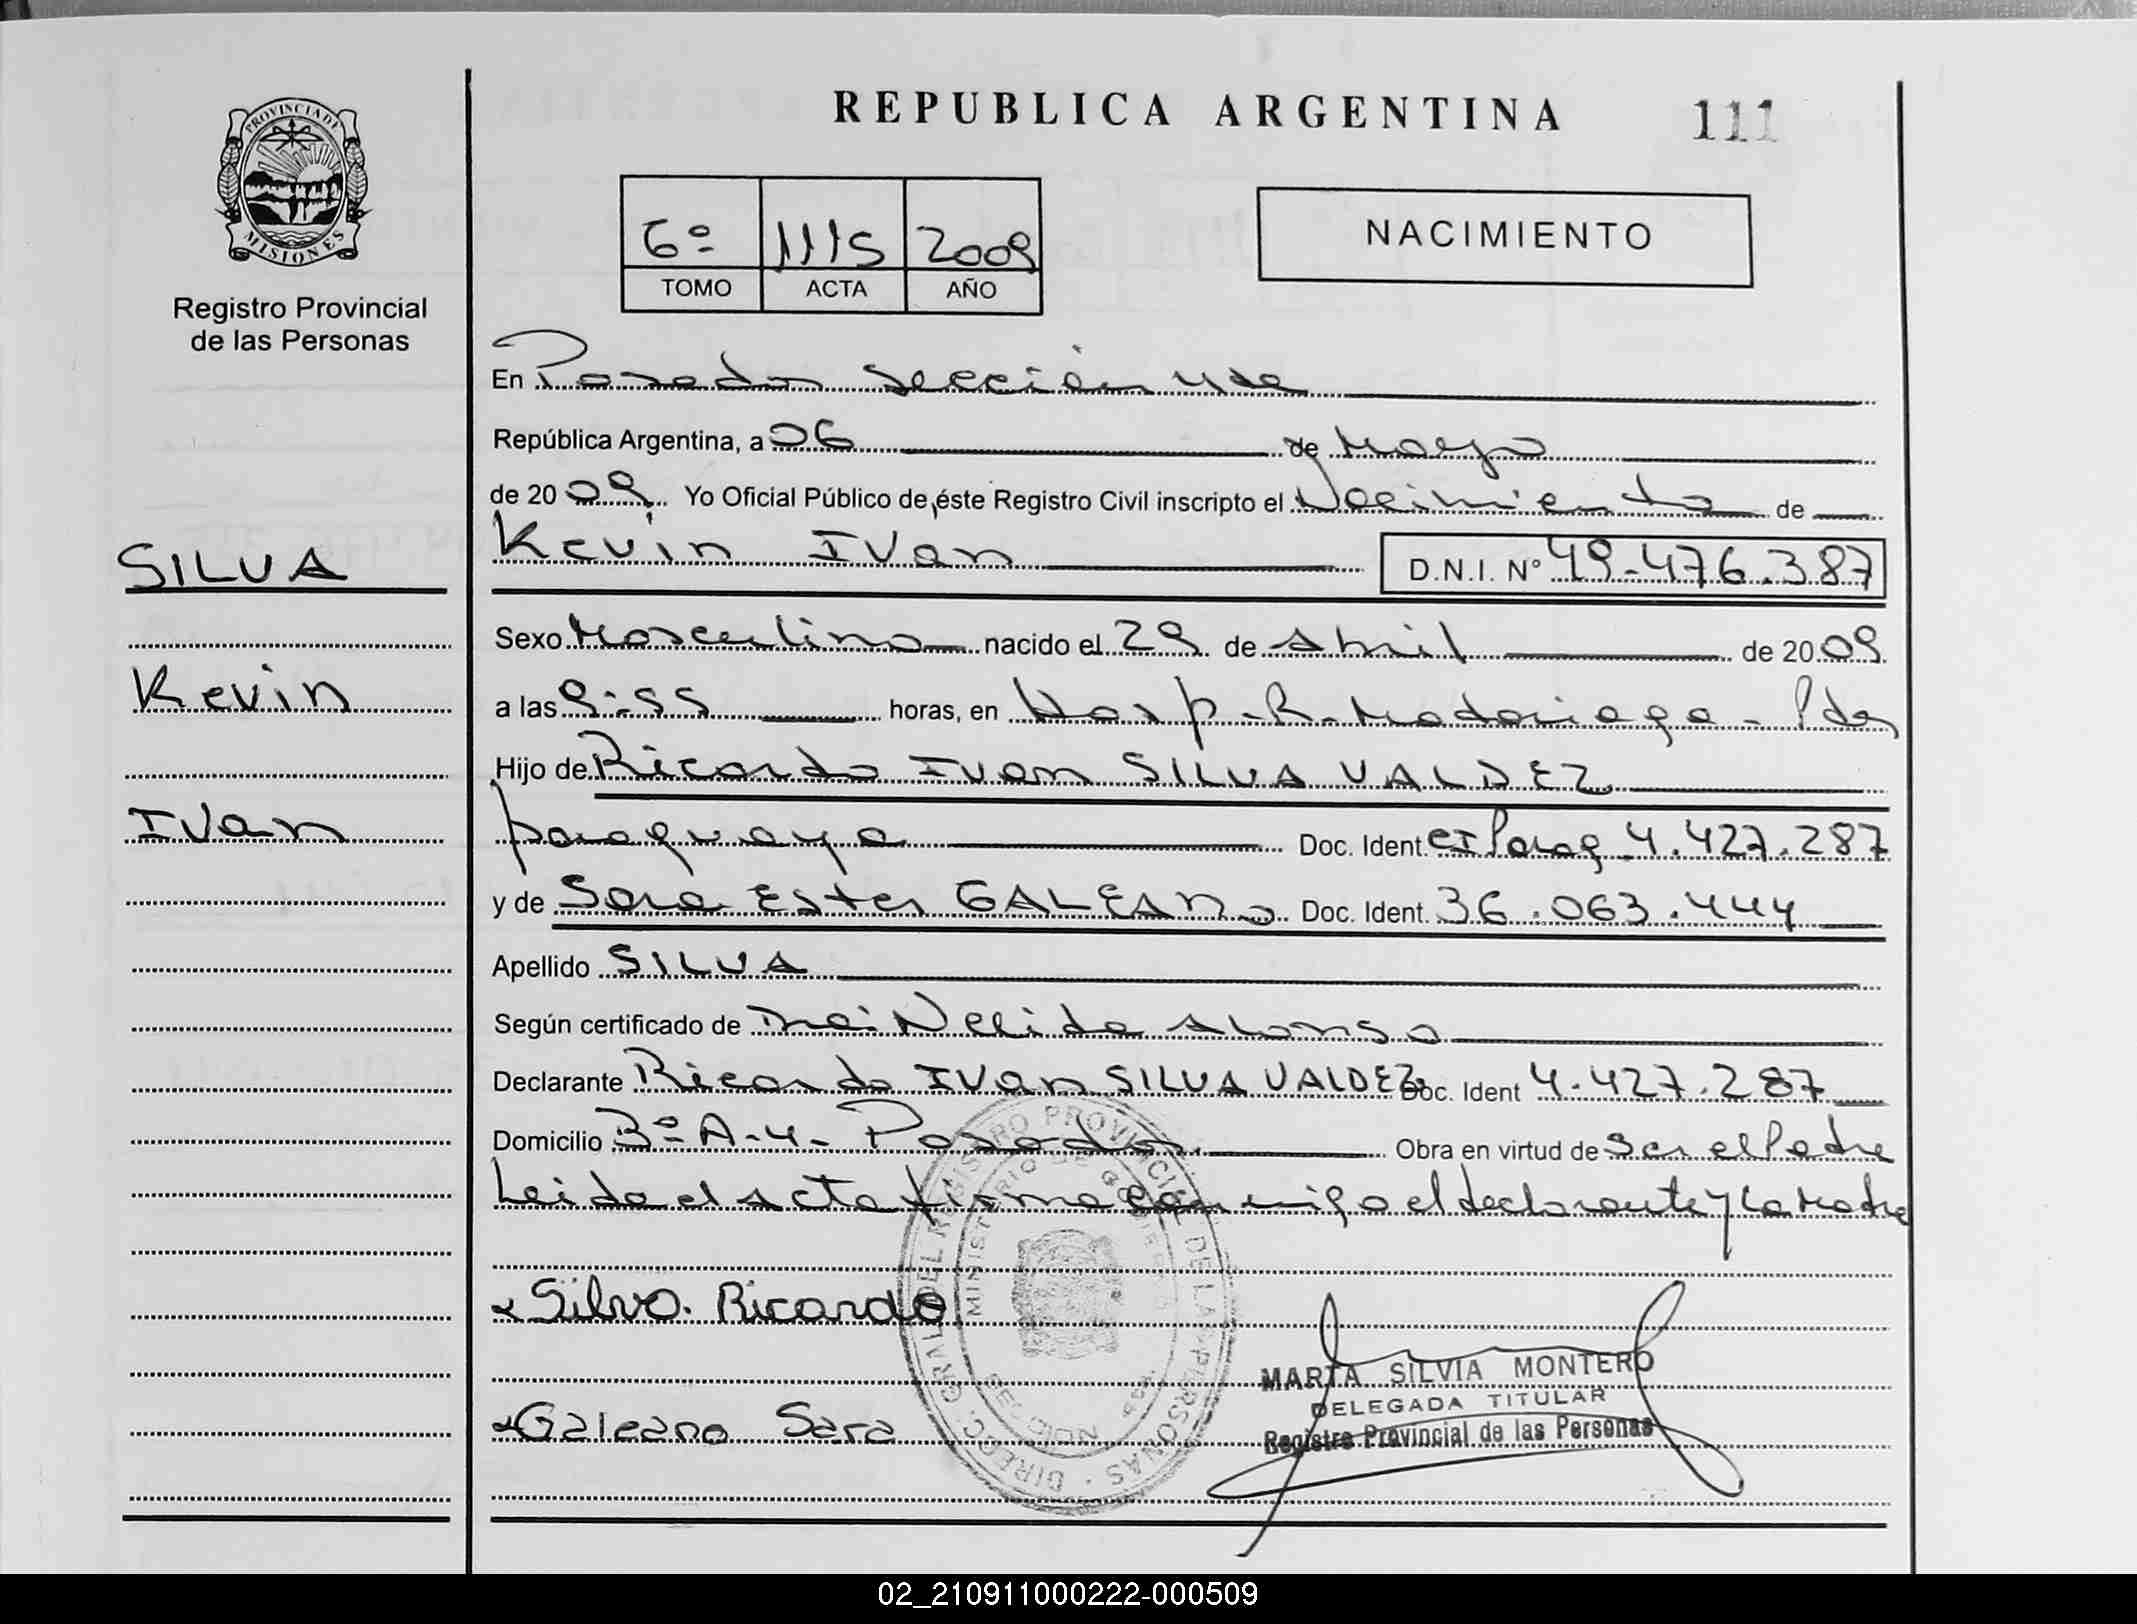 REPUBLICA ARGENTINA
111
PROVINCIA DE
MISIONES
Registro Provincial
de las Personas
6º 1115 2009
TOMO ACTA AÑO
NACIMIENTO
En Posadas sección 4ta
República Argentina, a 06 de Mayo
de 2009. Yo Oficial Público de éste Registro Civil inscripto el Nacimiento de
Kevin Ivan D.N.I. Nº 49.476.387
SILVA
Kevin
Ivan
Sexo Masculino nacido el 29 de Abril de 2009
a las 9:55 horas, en Hosp. R. Madariaga - Pdas
Hijo de Ricardo Ivan SILVA VALDEZ
paraguaya Doc. Ident. CI Parag 4.427.287
y de Sara Ester GALEANO Doc. Ident. 36.063.444
Apellido SILVA
Según certificado de Dra: Nelida Alonso
Declarante Ricardo Ivan SILVA VALDEZ Doc. Ident 4.427.287
Domicilio 3º A-4- Posadas Obra en virtud de Ser el Padre
Leida el acta firma conmigo el declarante y la Madre
Silva. Ricardo
Galeano Sara
DIRECC. GRAL. DEL REGISTRO PROVINCIAL DE LAS PERSONAS
MINISTERIO DE GOBIERNO
MARTA SILVIA MONTERO
DELEGADA TITULAR
Registro Provincial de las Personas
02_210911000222-000509